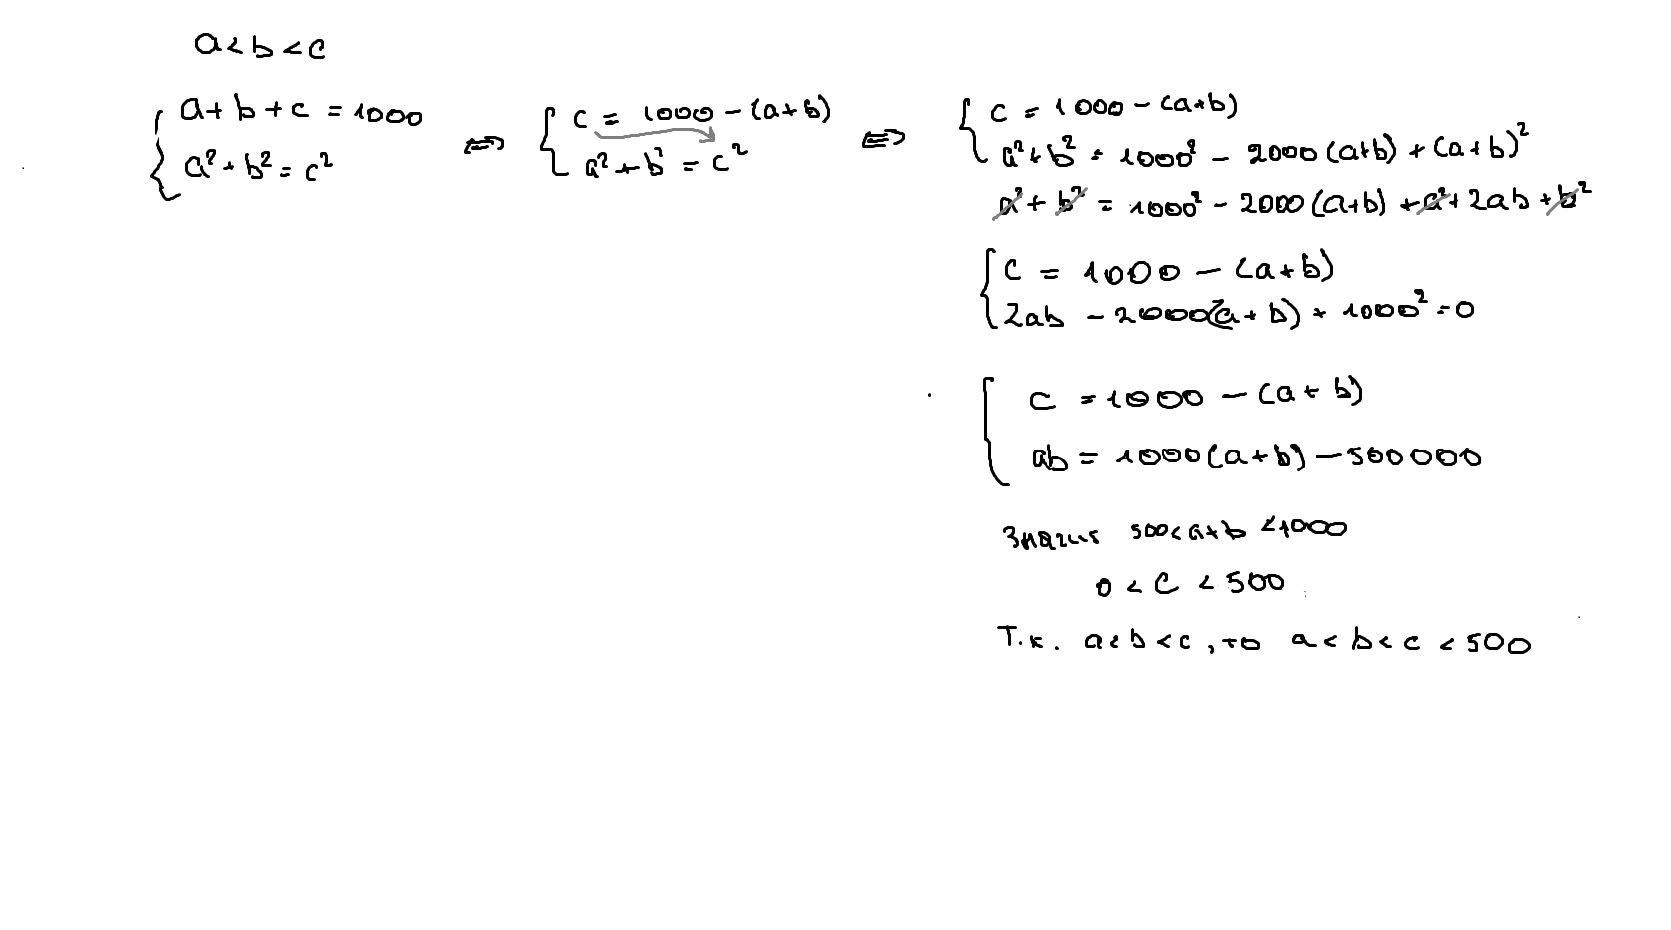 a < b < c
a + b + c = 1000
a² + b² = c²
⇔
c = 1000 - (a+b)
a² + b² = c²
⇔
c = 1000 - (a+b)
a² + b² = 1000² - 2000(a+b) + (a+b)²
a² + b² = 1000² - 2000(a+b) + a² + 2ab + b²
c = 1000 - (a+b)
2ab - 2000(a+b) + 1000² = 0
c = 1000 - (a+b)
ab = 1000(a+b) - 500000
Значит 500 < a+b < 1000
0 < c < 500
Т.к. a < b < c, то a < b < c < 500